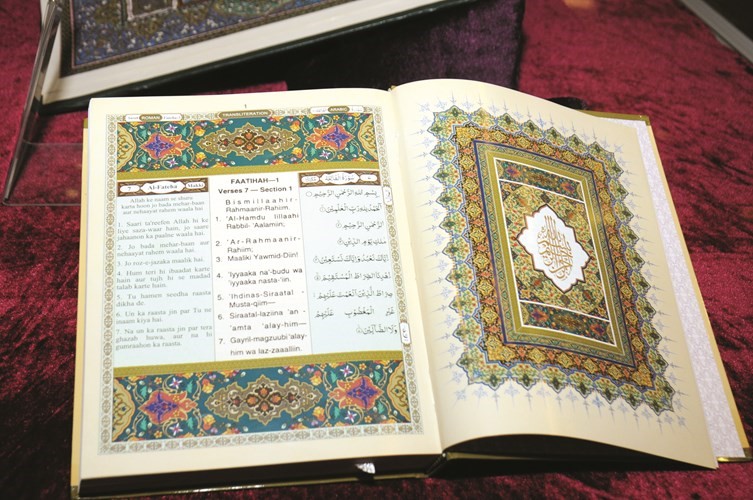 1
ROMAN
TRANSLITERATION
ARABIC
7
Al-Fateha
Makki
Allah ke naam se shuru
karta hoon jo bada mehar-baan
aur nehaayat rahem waala hai.
1. Saari ta'reefen Allah hi ke
liye saza-waar hain, jo saare
jahaanon ka paalne waala hai.
2. Jo bada mehar-baan aur
nehaayat rahem waala hai.
3. Jo roz-e-jaraka maalik hai.
4. Hum teri hi ibaadat karte
hain aur tujh hi se madad
talab karte hain.
5. Tu hamen seedha raasta
dikha de.
6. Un ka raasta jin par Tu ne
inaam kiya hai.
7. Na un ka raasta jin par tera
ghazab huwa, aur na hi
gumraahon ka raasta.
FAATIHAH—1
Verses 7 – Section 1
Bismillaahir-
Rahmaanir-Rahim.
1. 'Al-Hamdu lillaahi
Rabbil-'Aalamiin;
2. 'Ar-Rahmaanir-
Rahiim;
3. Maaliki Yawmid-Diin!
4. 'Iyyaaka na'-budu wa
'iyyaaka nasta-'iin.
5. 'Ihdinas-Siraatal-
Musta-qiim—
6. Siraatal-laziina 'an-
'amta 'alay-him—
7. Gayril-magzuubi 'alay-
him wa laz-zaaalliin.
بِسْمِ اللهِ الرَّحْمٰنِ الرَّحِيْمِ
اَلْحَمْدُ لِلّٰهِ رَبِّ الْعٰلَمِيْنَ
الرَّحْمٰنِ الرَّحِيْمِ
مٰلِكِ يَوْمِ الدِّيْنِ
اِيَّاكَ نَعْبُدُ وَاِيَّاكَ نَسْتَعِيْنُ
اِهْدِنَا الصِّرَاطَ الْمُسْتَقِيْمَ
صِرَاطَ الَّذِيْنَ اَنْعَمْتَ عَلَيْهِمْ
غَيْرِ الْمَغْضُوْبِ عَلَيْهِمْ
وَلَا الضَّآلِّيْنَ